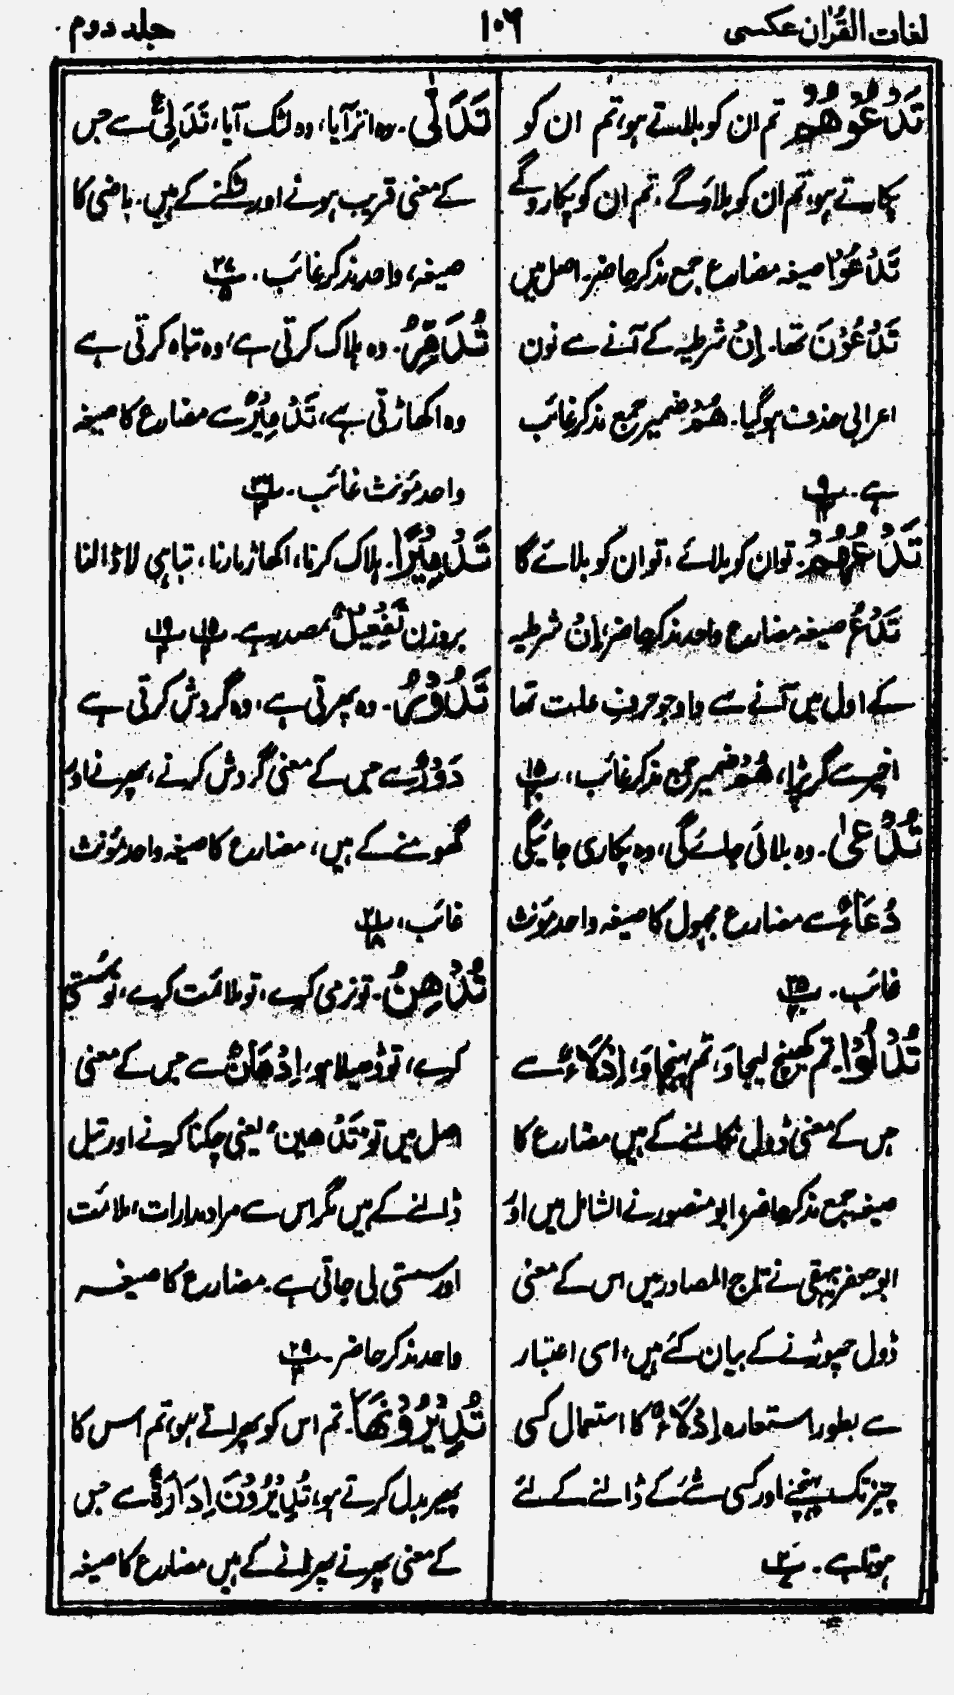 لغات القرآن عکسی
۱۰۶
جلد دوم
تَدْعُوْهُمْ تم ان کو بلاتے ہو، تم ان کو
پکارتے ہو، تم ان کو بلاؤ گے، تم ان کو پکارو گے
تَدْعُوْا صیغہ مضارع جمع مذکر حاضر۔ اصل میں
تَدْعُوْنَ تھا۔ اِنْ شرطیہ کے آنے سے نون
اعرابی حذف ہو گیا۔ هُمْ ضمیر جمع مذکر غائب
ہے۔ پ ۹
تَدْعُهُمْ۔ تو ان کو بلائے، تو ان کو بلائے گا
تَدْعُ صیغہ مضارع واحد مذکر حاضر، اِنْ شرطیہ
کے اول میں آنے سے واو جو حرفِ علت تھا
اخیر سے گر پڑا، هُمْ ضمیر جمع مذکر غائب، پ ۱۵
تُدْعٰی۔ وہ بلائی جائے گی، وہ پکاری جائیگی
دُعَاءٌ سے مضارع مجہول کا صیغہ واحد مؤنث
غائب۔ پ ۲۵
تُدْلُوْا۔ تم کھینچ لیجاؤ، تم پہنچاؤ، اِدْلَاءٌ سے
جس کے معنی ڈول نکالنے کے ہیں مضارع کا
صیغہ جمع مذکر حاضر، ابو منصور نے الشامل میں اور
ابو جعفر بیہقی نے تاج المصادر میں اس کے معنی
ڈول چھوڑنے کے بیان کئے ہیں، اسی اعتبار
سے بطور استعارہ اِدْلَاءٌ کا استعمال کسی
چیز تک پہنچنے اور کسی شئے کے ڈالنے کے لئے
ہوتا ہے۔ پ ۲
تَدَلّٰی۔ وہ اتر آیا، وہ لٹک آیا، تَدَلِّیْ سے جس
کے معنی قریب ہونے اور لٹکنے کے ہیں۔ ماضی کا
صیغہ، واحد مذکر غائب۔ پ ۲۷
تُدَمِّرُ۔ وہ ہلاک کرتی ہے، وہ تباہ کرتی ہے
وہ اکھاڑتی ہے، تَدْمِیْرٌ سے مضارع کا صیغہ
واحد مؤنث غائب۔ پ ۲۶
تَدْمِیْرًا۔ ہلاک کرنا، اکھاڑ مارنا، تباہی لا ڈالنا
بروزن تَفْعِیْلٌ مصدر ہے۔ پ ۱۵ پ ۱۹
تَدُوْرُ۔ وہ پھرتی ہے، وہ گردش کرتی ہے
دَوْرٌ سے جس کے معنی گردش کرنے، پھرنے اور
گھومنے کے ہیں، مضارع کا صیغہ واحد مؤنث
غائب، پ ۲۱
تُدْهِنُ۔ تو نرمی کرے، تو ملائمت کرے، تو سستی
کرے، تو ڈھیلا ہو، اِدْهَانٌ سے جس کے معنی
اصل میں تو تَدْهِین، یعنی چکنا کرنے اور تیل
ڈالنے کے ہیں مگر اس سے مراد مدارات، ملائمت
اور سستی لی جاتی ہے۔ مضارع کا صیغہ
واحد مذکر حاضر۔ پ ۲۹
تُدِیْرُوْنَهَا۔ تم اس کو پھراتے ہو، تم اس کا
پھیر بدل کرتے ہو، تُدِیْرُوْنَ اِدَارَةٌ سے جس
کے معنی پھرنے پھرانے کے ہیں مضارع کا صیغہ